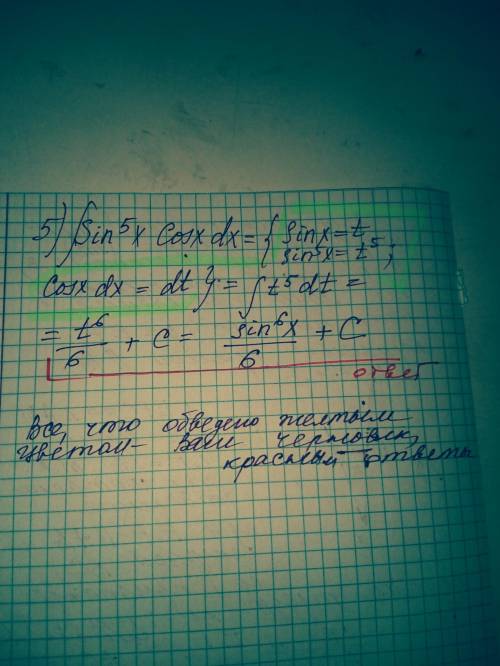 5) ∫sin⁵x cosx dx = { sinx = t
sin⁵x = t⁵;
cosx dx = dt } = ∫ t⁵ dt =
= t⁶/6 + C = sin⁶x/6 + C
ответ
Все, что обведено желтым
цветом – ваш черновик,
красным ответы